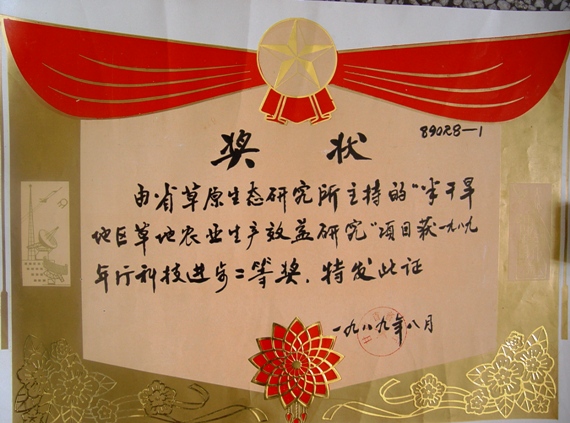 奖 状
89028—1
由省草原生态研究所主持的"半干旱
地区草地农业生产效益研究"项目获一九八九
年厅科技进步二等奖．特发此证
一九八九年八月